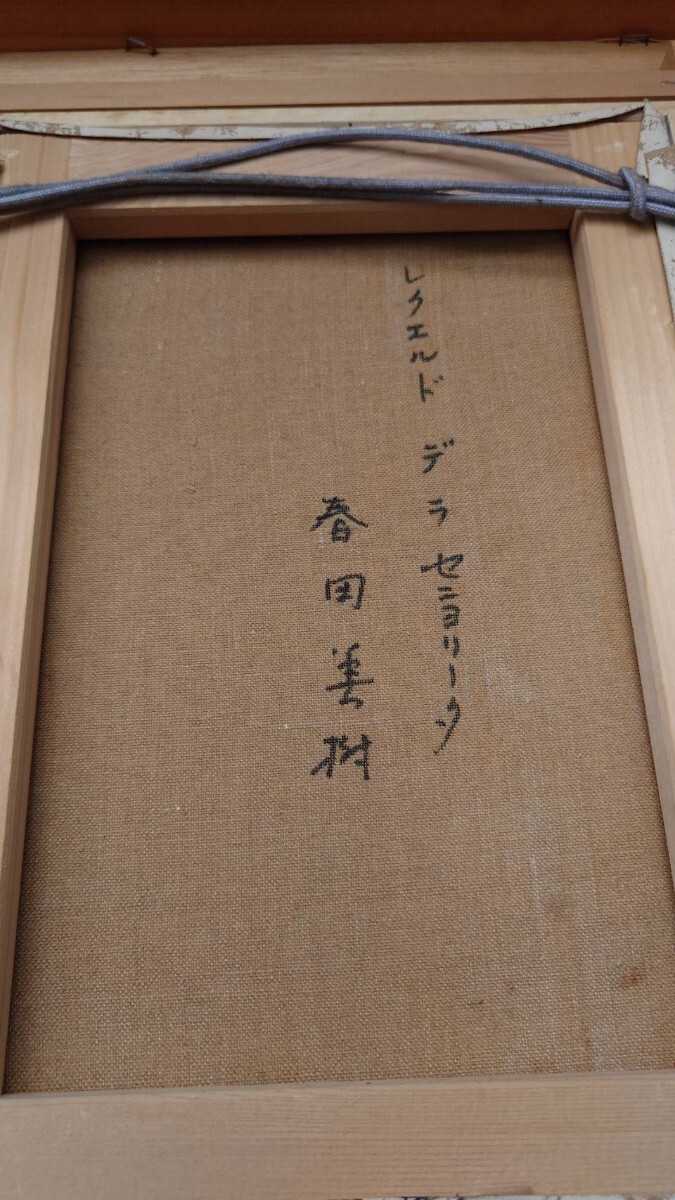 レクエルド デラ セニョリータ
春田美樹